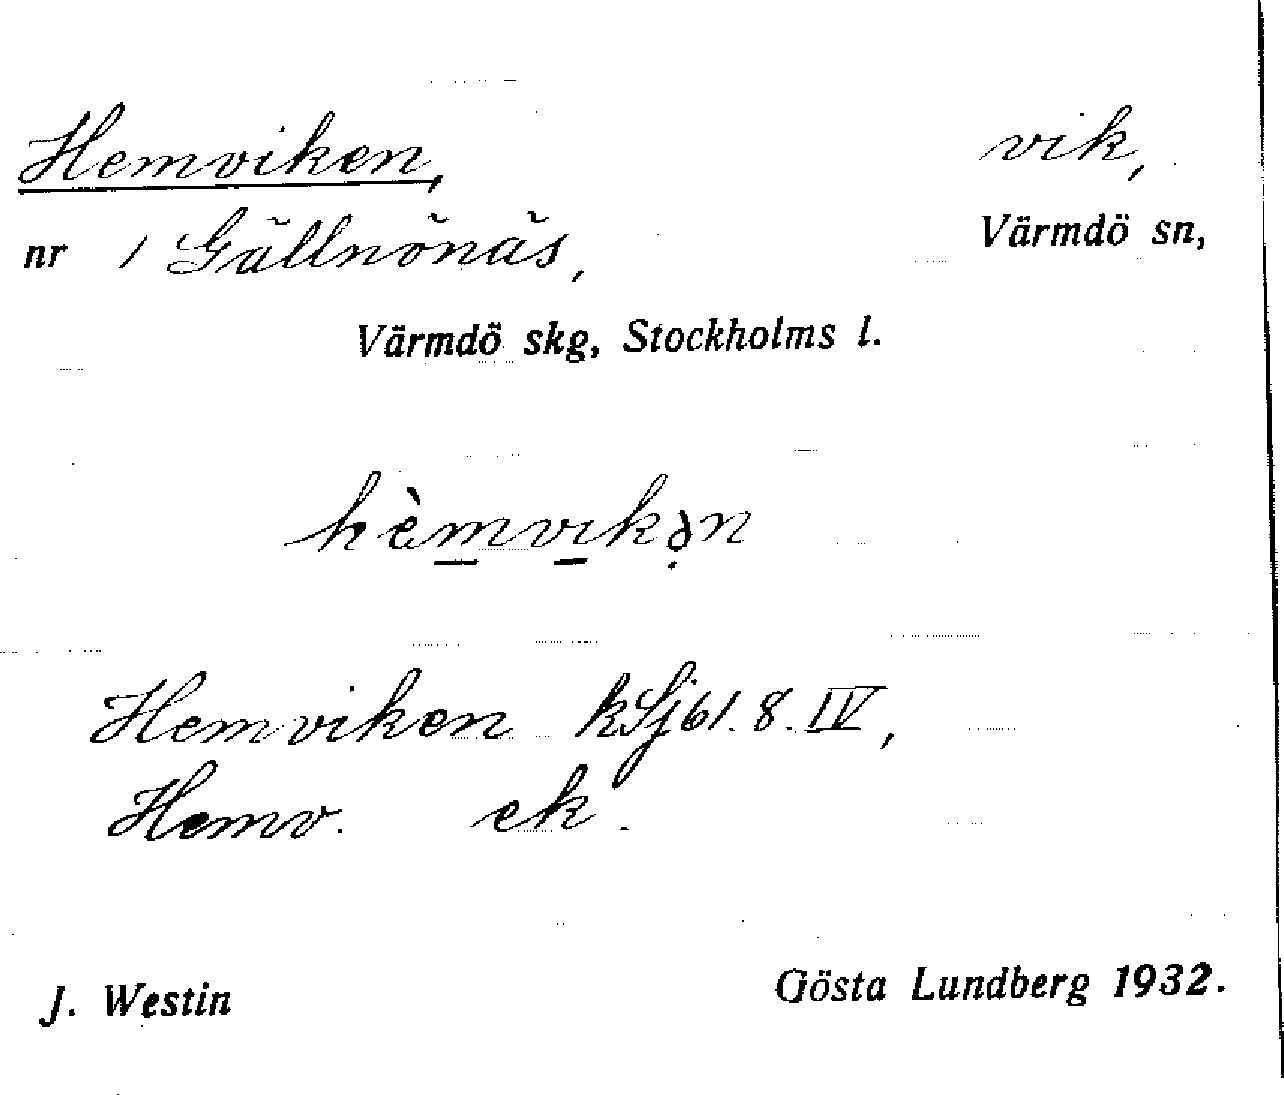 Hemviken, vik,
nr 1 Gällnönäs, Värmdö sn,
Värmdö skg, Stockholms l.
hèm̲vi̲kə̣n
Hemviken kSjbl. 8. IV,
Hemv. ek.
J. Westin Gösta Lundberg 1932.